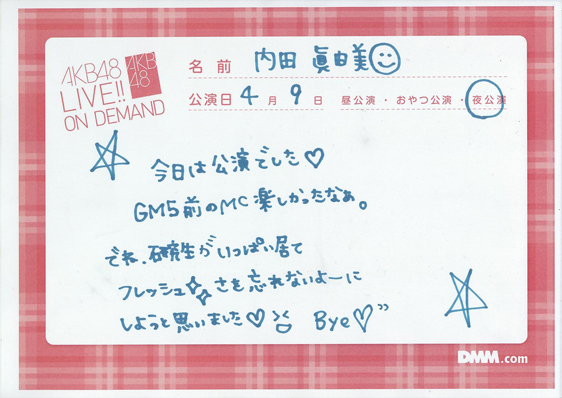 AKB48
LIVE!!
ON DEMAND
AKB
48
名前 内田 眞由美
公演日 4月 9日 昼公演・おやつ公演・夜公演
今日は公演でした♡
GM5前のMC楽しかったなぁ。
でね、研究生がいっぱい居て
フレッシュさを忘れないよーに
しようと思いました♡ Bye♡”
DMM.com